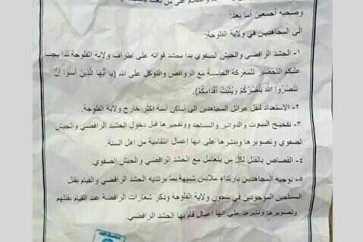 وصحبه أجمعين أما بعد:
الى المجاهدين في ولاية الفلوجة:
١- الحشد الرافضي والجيش الصفوي بدأ بحشد قواته على اطراف ولاية الفلوجة لذا يجب
عليكم التحضير للمعركة الحاسمة مع الروافض والتوكل على الله (يا أيها الذين آمنوا إن
تنصروا الله ينصركم ويثبت أقدامكم).
٢- الاستعداد لنقل عوائل المجاهدين الى اماكن آمنة اكثر خارج ولاية الفلوجة.
٣- تفخيخ البيوت والدوائر والمساجد وتفجيرها قبل دخول الحشد الرافضي والجيش
الصفوي وتصويرها ونشرها على أنها أعمال انتقامية من اهل السنة.
٤- القصاص بالقتل لكل من يتعامل مع الحشد الرافضي والجيش الصفوي.
٥- توجيه المجاهدين بارتداء ملابس شبيهة بما يرتديه الحشد الرافضي والقيام بقتل
المسلحين الموجودين في سجون ولاية الفلوجة وذكر شعارات الرافضة عند القيام بقتلهم
وتصويرها ونشرها على أنها أعمال قام بها الحشد الرافضي.